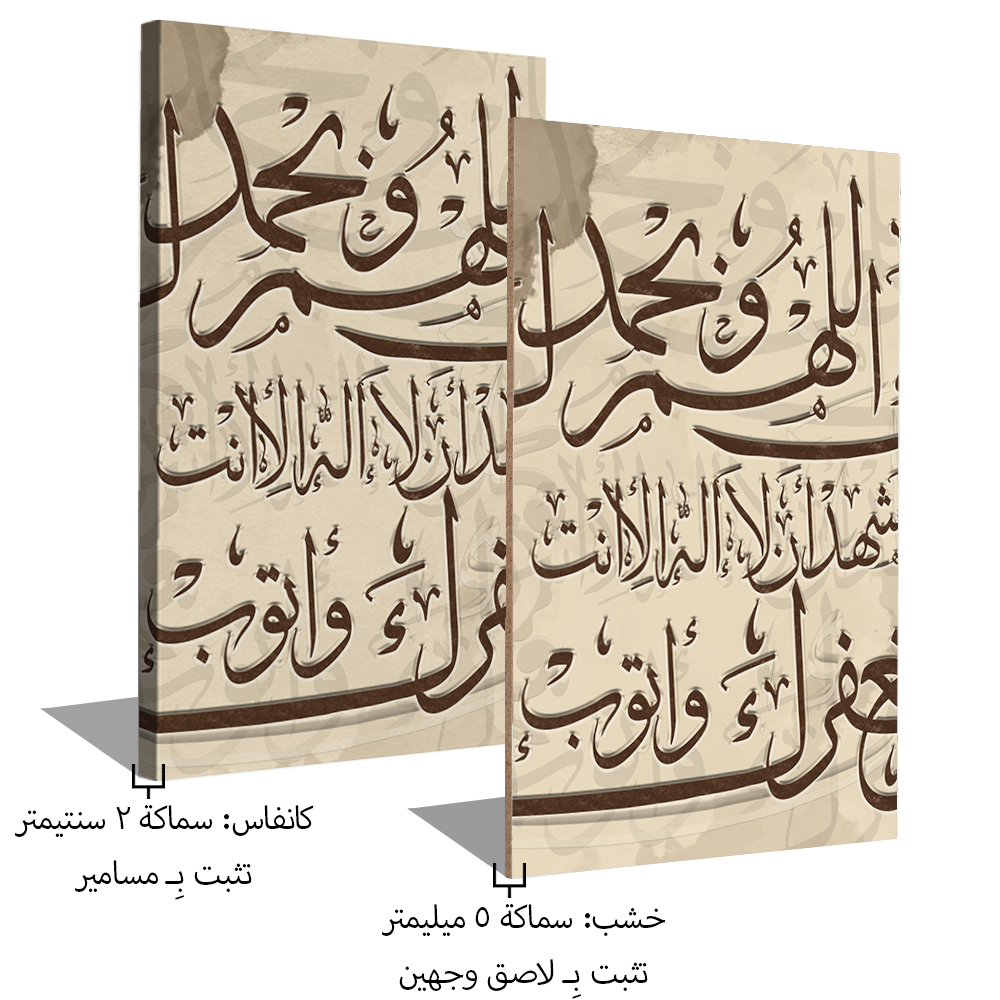 للهم وبحمدك
د أن لا إله إلا أنت
فرك وأتوب
اللهم وبحمدك
شهد أن لا إله إلا أنت
غفرك وأتوب
كانفاس: سماكة ٢ سنتيمتر
تثبت بِـ مسامير
خشب: سماكة ٥ ميليمتر
تثبت بِـ لاصق وجهين